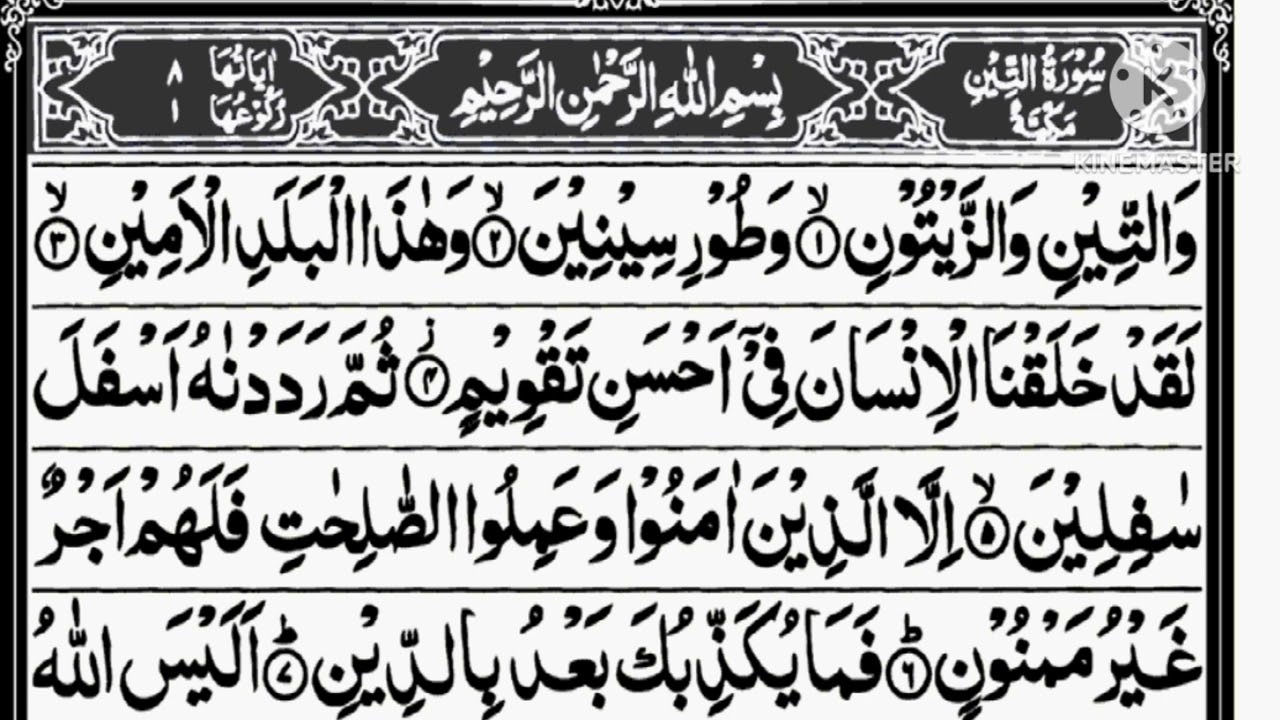 سُوْرَةُ التِّيْنِ مَكِّيَّةٌ
بِسْمِ اللهِ الرَّحْمٰنِ الرَّحِيْمِ
اٰيَاتُهَا ٨
رُكُوْعُهَا ١
KINEMASTER
وَالتِّيْنِ وَالزَّيْتُوْنِ ۙ﴿١﴾ وَطُوْرِ سِيْنِيْنَ ۙ﴿٢﴾ وَهٰذَا الْبَلَدِ الْاَمِيْنِ ۙ﴿٣﴾
لَقَدْ خَلَقْنَا الْاِنْسَانَ فِيْٓ اَحْسَنِ تَقْوِيْمٍ ز﴿٤﴾ ثُمَّ رَدَدْنٰهُ اَسْفَلَ
سٰفِلِيْنَ ۙ﴿٥﴾ اِلَّا الَّذِيْنَ اٰمَنُوْا وَعَمِلُوا الصّٰلِحٰتِ فَلَهُمْ اَجْرٌ
غَيْرُ مَمْنُوْنٍ ؕ﴿٦﴾ فَمَا يُكَذِّبُكَ بَعْدُ بِالدِّيْنِ ؕ﴿٧﴾ اَلَيْسَ اللهُ